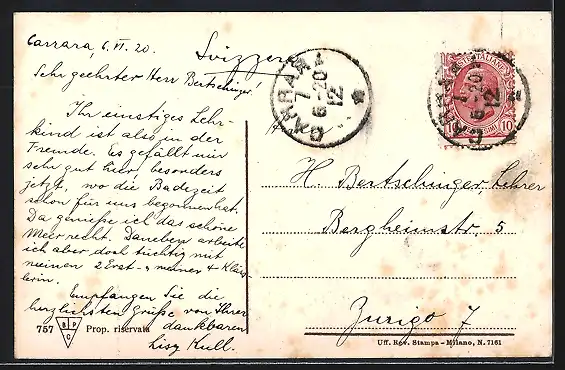 Carrara, 6. VI. 20.
Svizzera
Sehr geehrter Herr Bertschinger!
Ihr einstiges Lehr-
kind ist also in der
Fremde. Es gefällt mir
sehr gut hier, besonders
jetzt, wo die Badezeit
schon für uns begonnen hat.
Da genieße ich das schöne
Meer recht. Daneben arbeite
ich aber doch tüchtig mit
meinen 2 Erst-, meiner 4 Kläss
lerin.
Empfangen Sie die
herzlichsten Grüße von Ihrer
dankbaren
Lisy Kull.
CARRARA
7
6-20
12
POSTE ITALIANE
10 10
CARRARA
7
6-20
12
H. Bertschinger, Lehrer
Bergheimstr. 5
Zurigo 7
757 B P C Prop. riservata
Uff. Rev. Stampa - Milano, N. 7161